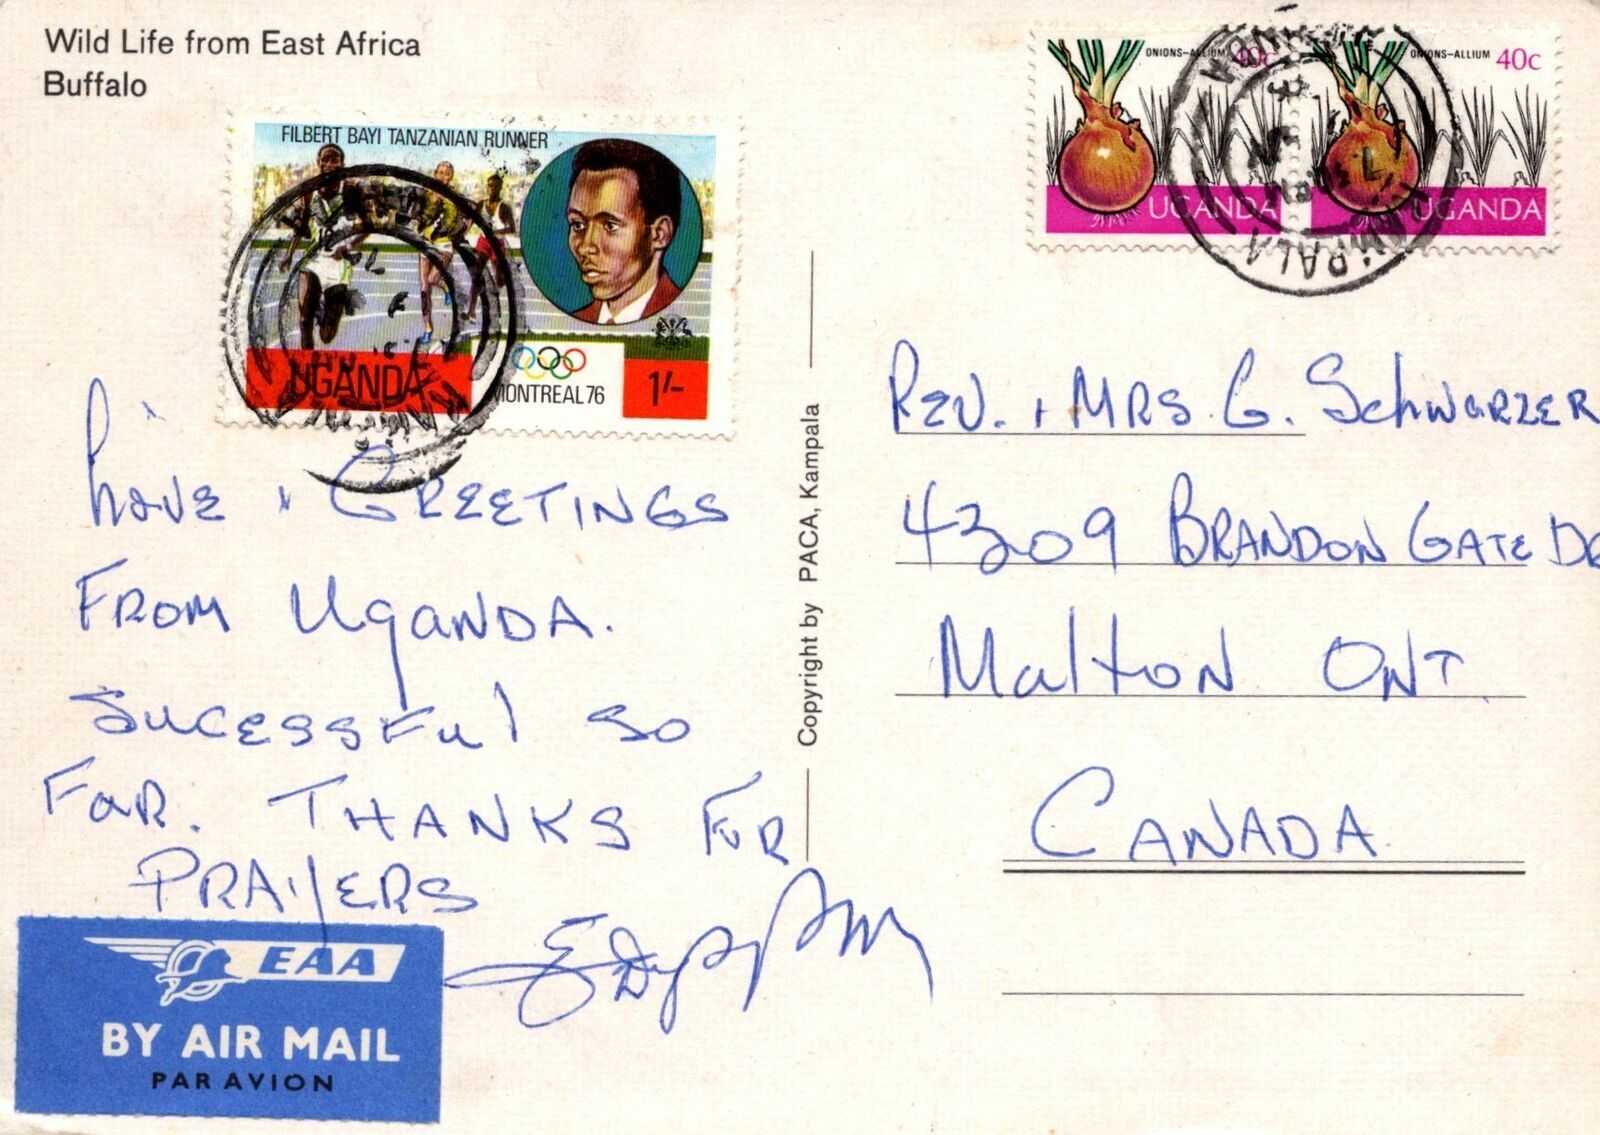 Wild Life from East Africa
Buffalo
FILBERT BAYI TANZANIAN RUNNER
UGANDA
MONTREAL 76
1/-
ONIONS-ALLIUM 40c
UGANDA
ONIONS-ALLIUM 40c
UGANDA
KAMPALA
LOVE & GREETINGS
FROM UgANDA.
SUCESSFUl SO
FAR. THANKS FOR
PRAYERS
Copyright by PACA, Kampala
REV. & MRS G. SchwARZER
4309 BRANDON GATE DR
MalTON ONT.
CANADA.
EAA
BY AIR MAIL
PAR AVION